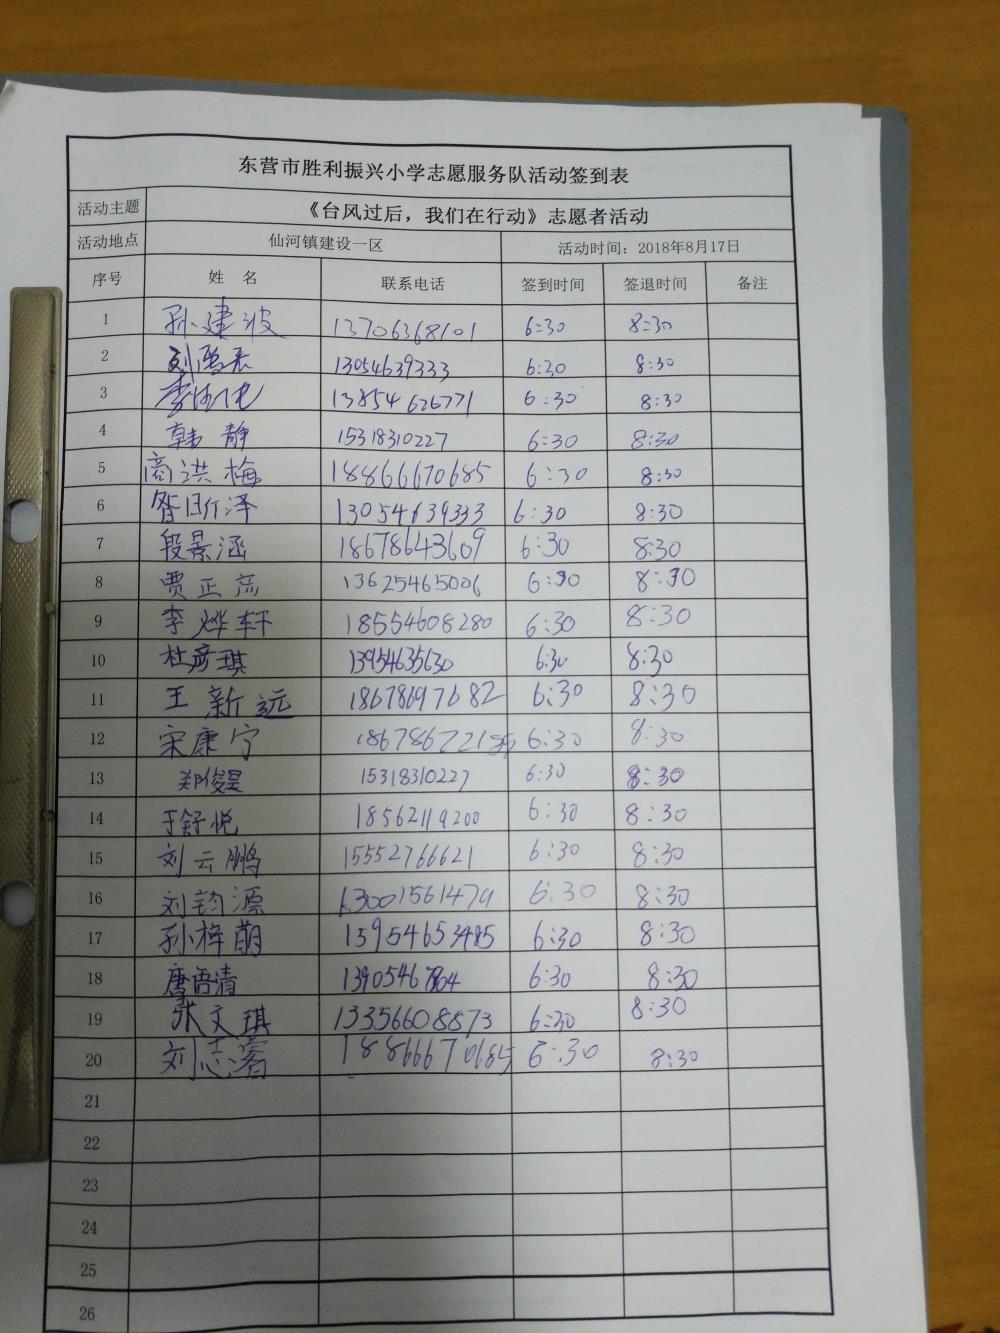 东营市胜利振兴小学志愿服务队活动签到表
活动主题 《台风过后，我们在行动》志愿者活动
活动地点 仙河镇建设一区 活动时间：2018年8月17日
序号 姓 名 联系电话 签到时间 签退时间 备注
1 孙建波 13706368101 6:30 8:30
2 13054639333 6:30 8:30
3 13854626771 6:30 8:30
4 韩静 15318310227 6:30 8:30
5 商洪梅 18866670685 6:30 8:30
6 泽 13054639333 6:30 8:30
7 段景涵 18678643609 6:30 8:30
8 贾正 13625465006 6:30 8:30
9 李烨轩 18554608280 6:30 8:30
10 杜彦琪 13954635630 6:30 8:30
11 王新远 18678697682 6:30 8:30
12 宋康宁 6:30 8:30
13 郑俊昊 15318310227 6:30 8:30
14 于舒悦 18562119200 6:30 8:30
15 刘云鹏 15552766621 6:30 8:30
16 刘钧源 6:30 8:30
17 孙梓萌 15954653485 6:30 8:30
18 唐语清 6:30 8:30
19 张文琪 13356608873 6:30 8:30
20 刘志睿 18866670685 6:30 8:30
21
22
23
24
25
26